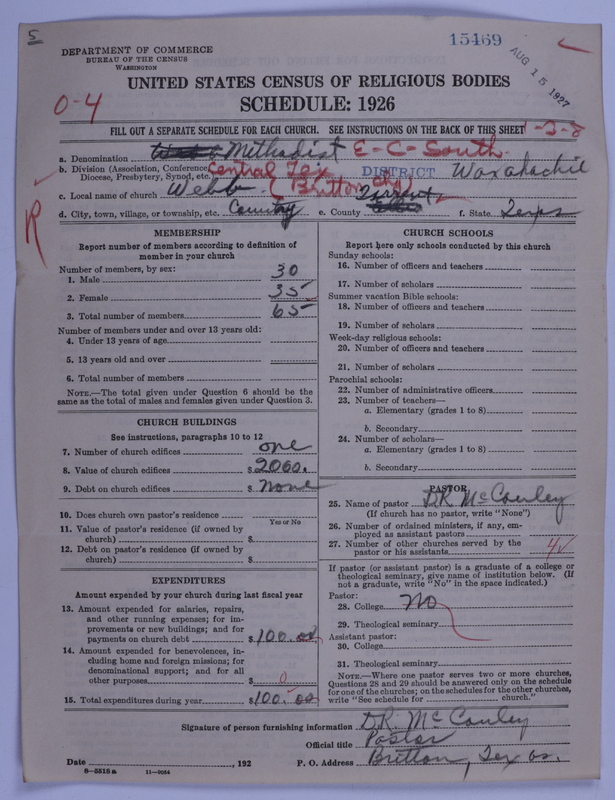 5
15469
DEPARTMENT OF COMMERCE
BUREAU OF THE CENSUS
WASHINGTON
AUG 15 1927
UNITED STATES CENSUS OF RELIGIOUS BODIES
0-4
SCHEDULE: 1926
FILL OUT A SEPARATE SCHEDULE FOR EACH CHURCH. SEE INSTRUCTIONS ON THE BACK OF THIS SHEET
1-3-8
a. Denomination Methodist E-C-South
b. Division (Association, Conference, Central Tex DISTRICT Waxahachie
Diocese, Presbytery, Synod, etc.)
c. Local name of church Webb (Britton Chg)
R
d. City, town, village, or township, etc. Country e. County Tarrant f. State Texas
MEMBERSHIP
Report number of members according to definition of
member in your church
Number of members, by sex:
1. Male 30
2. Female 35
3. Total number of members 65
Number of members under and over 13 years old:
4. Under 13 years of age
5. 13 years old and over
6. Total number of members
NOTE.—The total given under Question 6 should be the
same as the total of males and females given under Question 3.
CHURCH BUILDINGS
See instructions, paragraphs 10 to 12
7. Number of church edifices one
8. Value of church edifices $2000.
9. Debt on church edifices $ None
10. Does church own pastor's residence
Yes or No
11. Value of pastor's residence (if owned by
church) $
12. Debt on pastor's residence (if owned by
church) $
EXPENDITURES
Amount expended by your church during last fiscal year
13. Amount expended for salaries, repairs,
and other running expenses; for im-
provements or new buildings; and for
payments on church debt $100.00
14. Amount expended for benevolences, in-
cluding home and foreign missions; for
denominational support; and for all
other purposes $ 0
15. Total expenditures during year $100.00
CHURCH SCHOOLS
Report here only schools conducted by this church
Sunday schools:
16. Number of officers and teachers
17. Number of scholars
Summer vacation Bible schools:
18. Number of officers and teachers
19. Number of scholars
Week-day religious schools:
20. Number of officers and teachers
21. Number of scholars
Parochial schools:
22. Number of administrative officers
23. Number of teachers—
a. Elementary (grades 1 to 8)
b. Secondary
24. Number of scholars—
a. Elementary (grades 1 to 8)
b. Secondary
PASTOR
25. Name of pastor D.R. McCauley
(If church has no pastor, write "None")
26. Number of ordained ministers, if any, em-
ployed as assistant pastors
27. Number of other churches served by the
pastor or his assistants 4
If pastor (or assistant pastor) is a graduate of a college or
theological seminary, give name of institution below. (If
not a graduate, write "No" in the space indicated.)
Pastor:
28. College No
29. Theological seminary
Assistant pastor:
30. College
31. Theological seminary
NOTE.—Where one pastor serves two or more churches,
Questions 28 and 29 should be answered only on the schedule
for one of the churches; on the schedules for the other churches,
write "See schedule for church."
Signature of person furnishing information D.R. McCauley
Official title Pastor
Date , 192 P. O. Address Britton, Texas.
8-5516a 11-9084